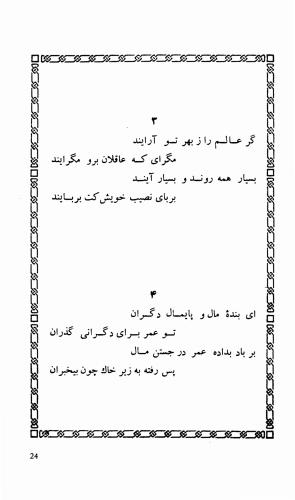 ۳
گر عالم را ز بهر تو آرایند
مگرای که عاقلان برو مگرایند
بسیار همه روند و بسیار آیند
بربای نصیب خویش کت بربایند
۴
ای بندهٔ مال و پایمال دگران
تو عمر برای دگرانی گذران
بر باد بداده عمر در جستن مال
پس رفته به زیر خاك چون بیخبران
24